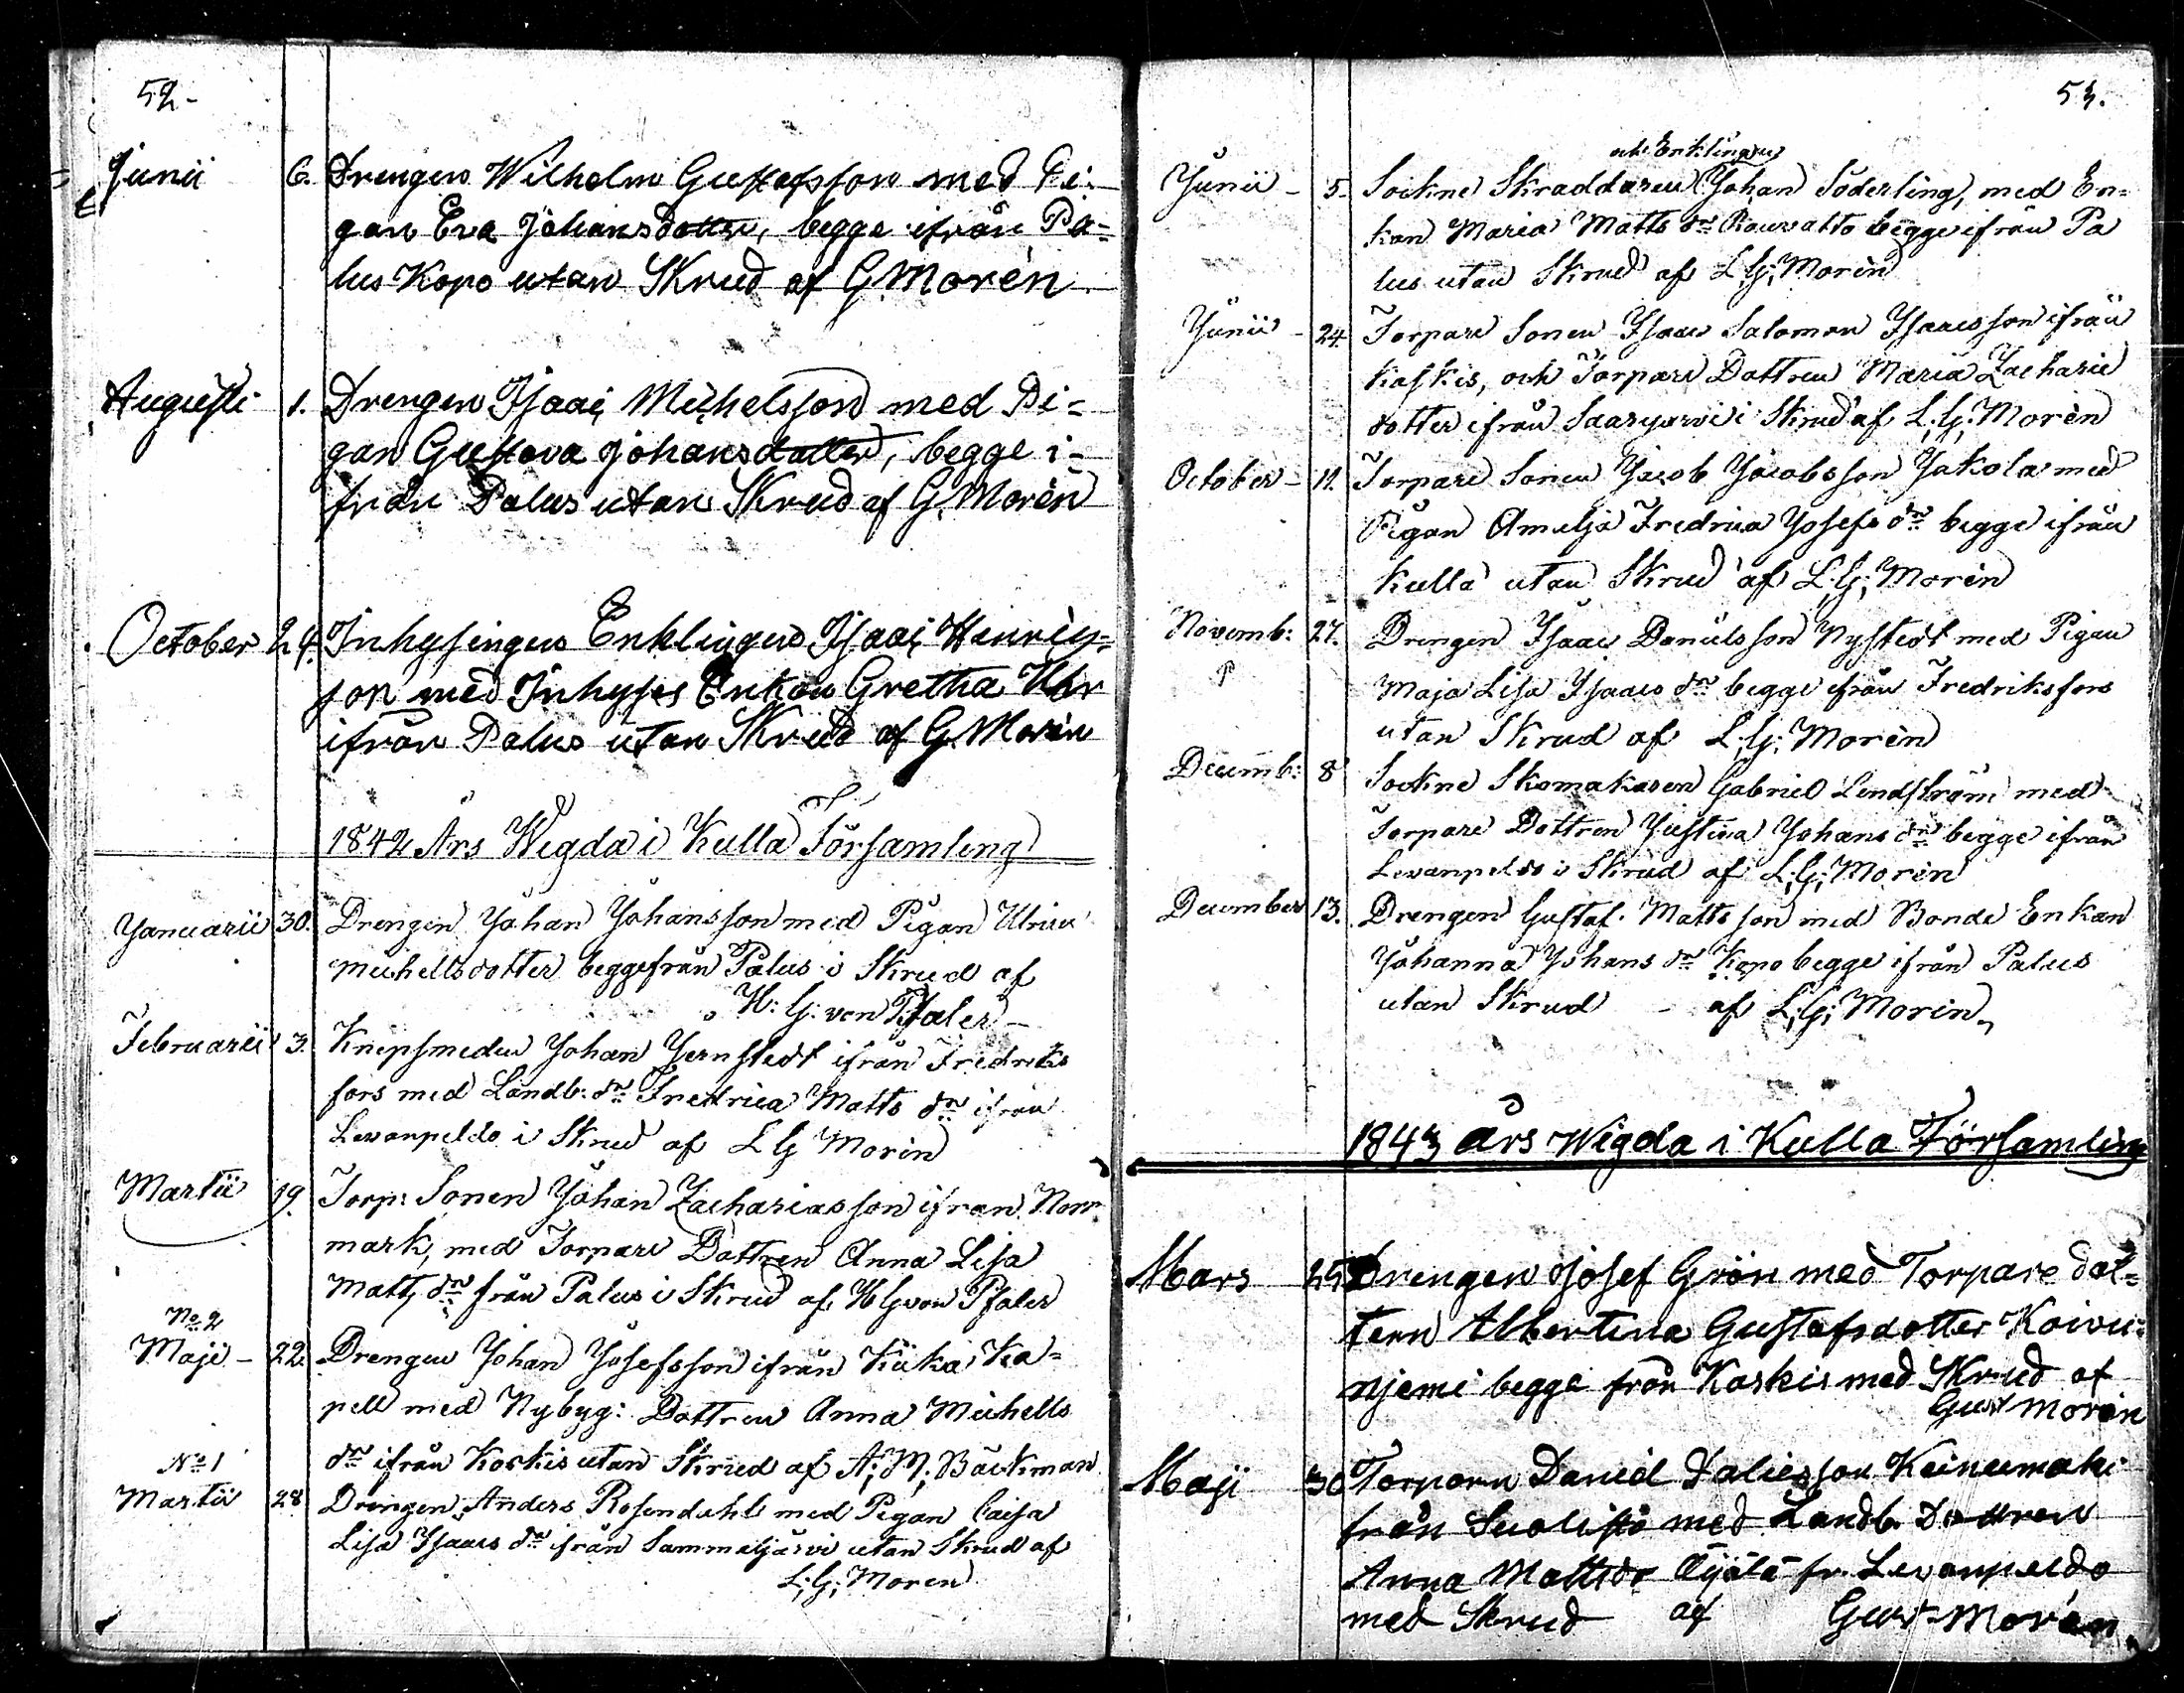 52-
Junii 6. Drengen Wilhelm Gustafsson med Pi-
gan Eva Johansdotter, begge ifrån Pa-
lus Kopo utan Skrud af G. Morén
Augusti 1. Drengen Isaac Michelsson med Pi-
gan Gustava Johansdotter, begge i-
från Palus utan Skrud af G. Morén
October 24. Inhysingen Enklingen Isaac Henrics-
son med Inhyses Enkan Gretha
ifrån Palus utan Skrud af G. Morén
1842 Års Wigda i Kulla Församling
Januarii 30. Drengen Johan Johansson med Pigan Ulrica
Michellsdotter begge från Palus i Skrud af
H: G: von Pfaler
Februarii 3. Knipsmeden Johan Jernstedt ifrån Fredriks
fors med Landb: dr Fredrica Matts dr ifrån
Levanpeldo i Skrud af L G Morén
Martii 19. Torp: Sonen Johan Zachariasson ifrån Norr
mark, med Torpare Dottren Anna Lisa
Matts dr från Palus i Skrud af H G von Pfaler
No 2
Maji - 22. Drengen Johan Josefsson ifrån Kiika Ka-
pell med Nybyg: Dottren Anna Michells
dr ifrån Koskis utan Skrud af A; M; Bäckman
No 1
Martii 28 Drengen Anders Rosendahl med Pigan Caisa
Lisa Isaacs dr ifrån Sammaljärvi utan Skrud af
L; G; Morén
53.
och Enklingen
Junii - 5. Sockne Skraddaren Johan Söderling, med En-
kan Maria Matts dr begge ifrån Pa
lus utan Skrud af L; G; Morén
Junii - 24. Torpare Sonen Isaac Salomon Isaacsson ifrån
Kaskis, och Torpare Dottren Maria Zacharie
dotter ifrån Saarijarvi i Skrud af L; G; Morén
October - 11. Torpare Sonen Jacob Jacobsson Jakola med
Pigan Amalja Fredrica Josefs dr begge ifrån
Kulla utan Skrud af L; G; Morén
Novemb: 27. Drengen Isaac Danielsson Nystedt med Pigan
Maja Lisa Isaacs dr begge ifrån Fredriksfors
utan Skrud af L; G; Morén
Decemb: 8 Sockne Skomakaren Gabriel Lindström med
Torpare Dottren Justina Johans dr begge ifrån
Levanpeldo i Skrud af L; G; Morén
December 13. Drengen Gustaf Mattsson med Bonde Enkan
Johanna Johans dr Kopo begge ifrån Palus
utan Skrud - af L; G; Morén
1843 års Wigda i Kulla Församling
Mars 25 Drengen Josef Grön med Torpare dot-
tern Albertina Gustafsdotter Koivu-
njemi begge från Koskis med Skrud af
Gust Morén
Maji 30 Torparn David Keinumaki
från Suolistö med Landb. Dottren
Anna Mattsdr Äijälä fr. Levanpeldo
med Skrud af Gust Morén